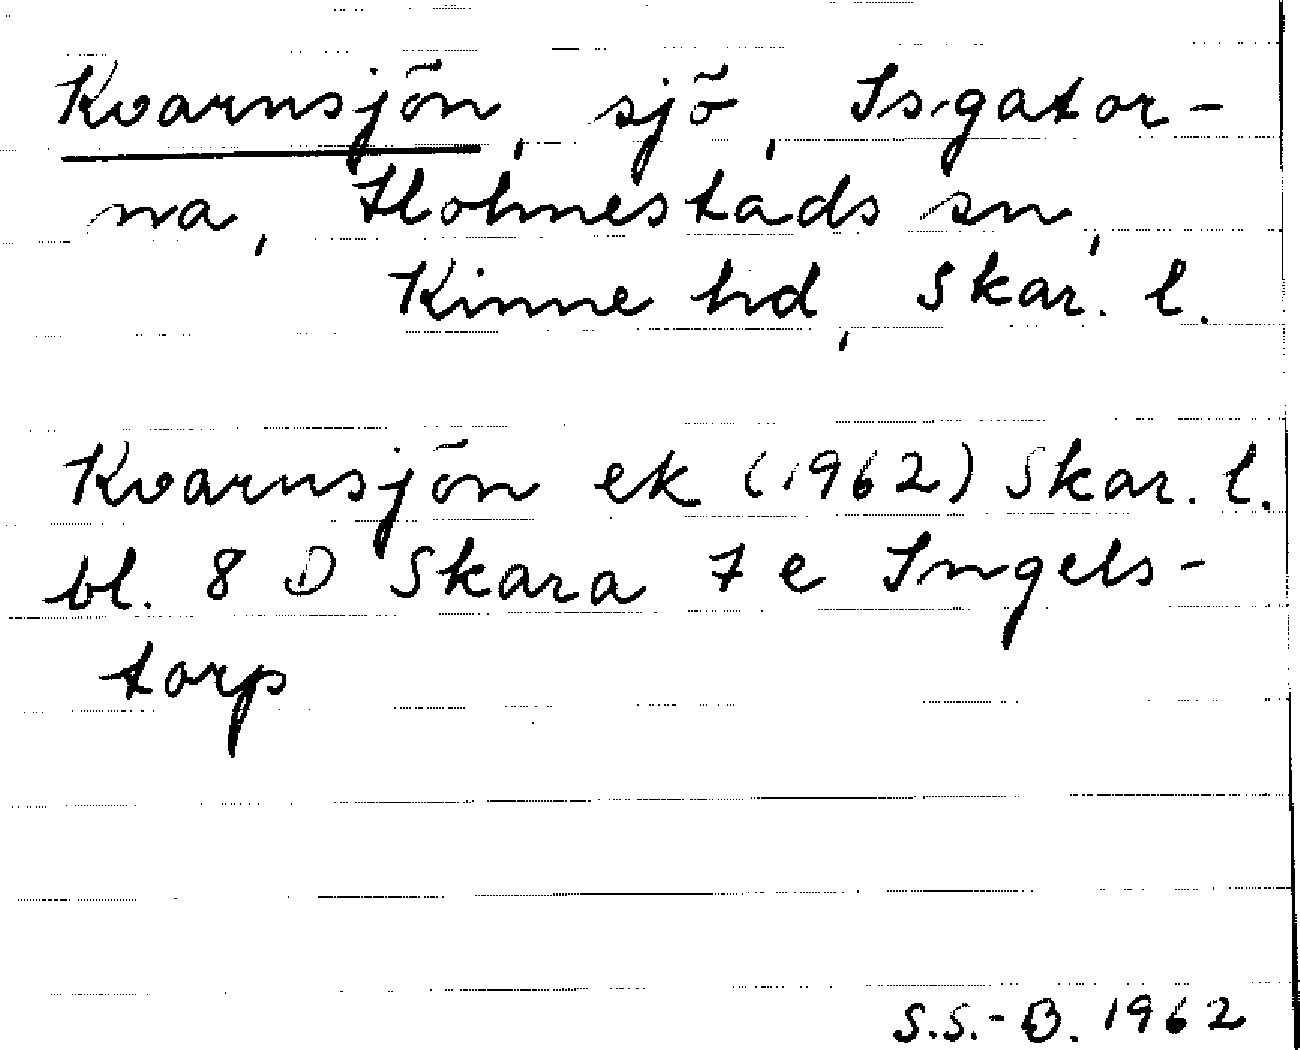 Kvarnsjön, sjö, Isgator-
na, Holmestads sn,
Kinne hd, Skar. l.
Kvarnsjön ek (1962) Skar. l.
bl. 8 D Skara 7 e Ingels-
torp
S.S.-B. 1962